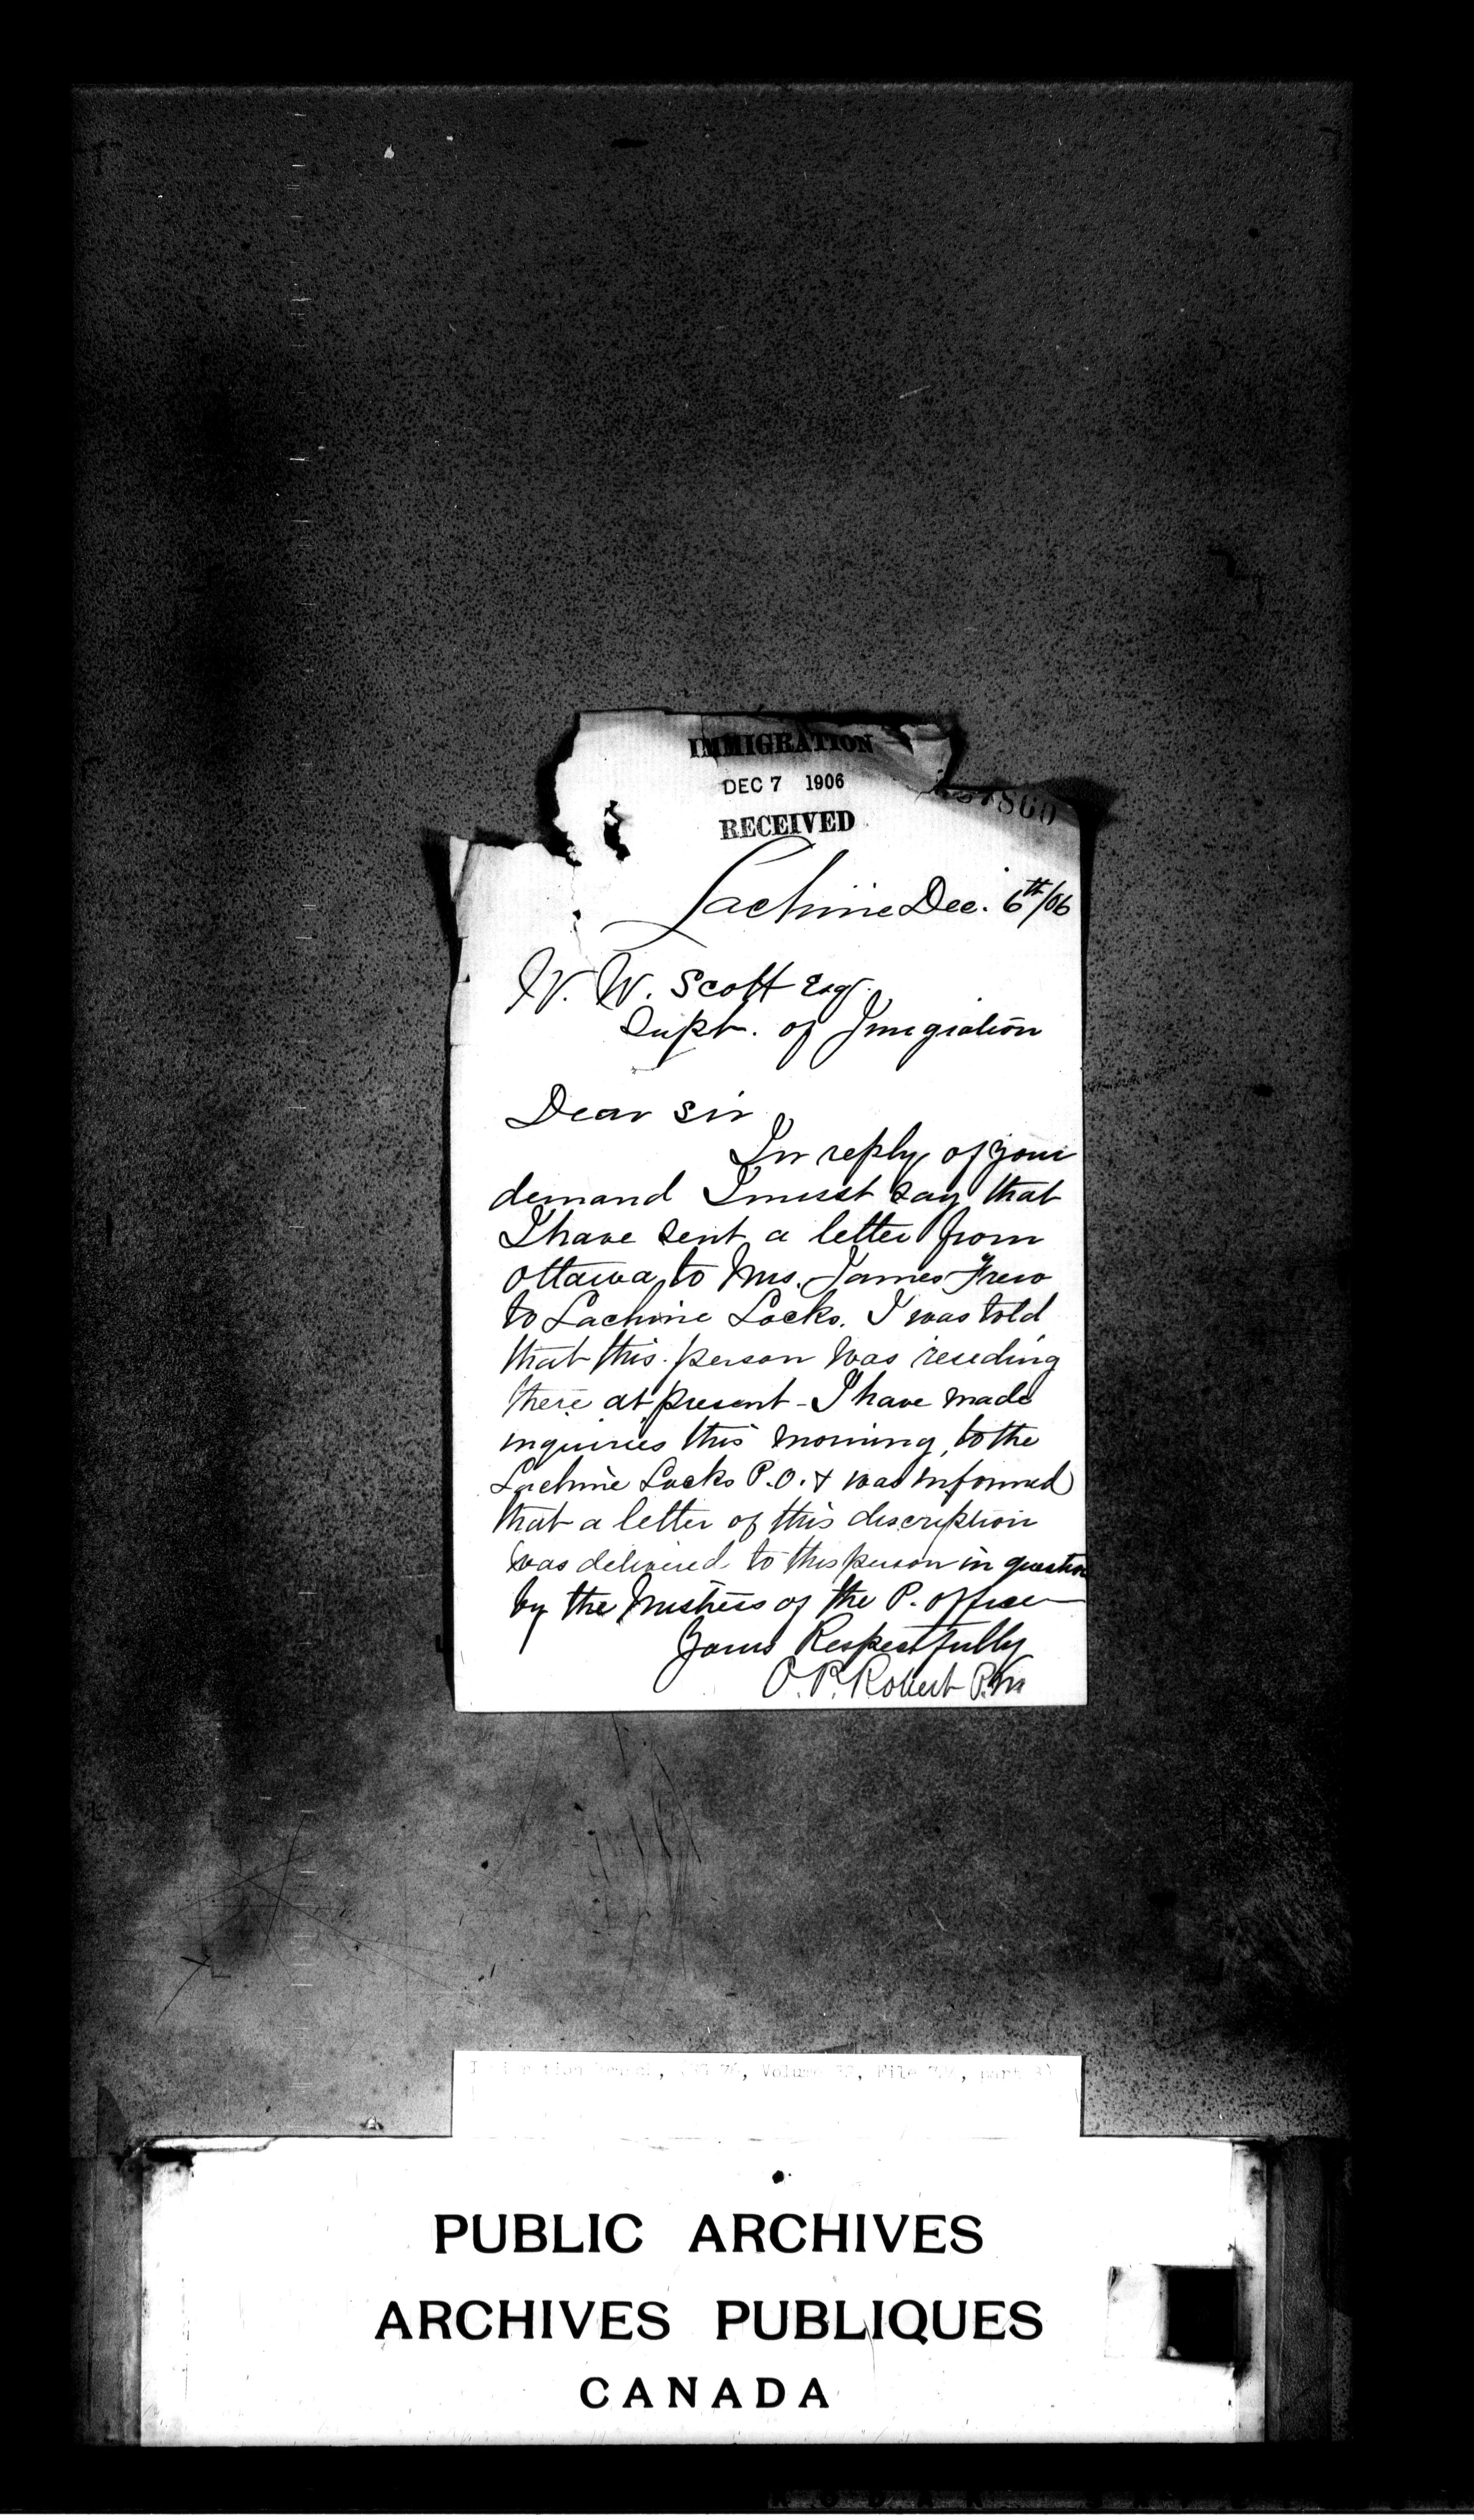 IMMIGRATION
DEC 7 1906
RECEIVED
Lachine Dec. 6th/06
W. W. Scott Esq.
Supt. of Immigration
Dear Sir
In reply of your
demand I must say that
I have sent a letter from
Ottawa to Mrs. James Frew
to Lachine Locks. I was told
that this person was residing
there at present - I have made
inquiries this morning, to the
Lachine Locks P.O. & was informed
that a letter of this description
was delivered to this person in question
by the Mistress of the P. Office
Yours Respectfully
O. P. Robert P.M
PUBLIC ARCHIVES
ARCHIVES PUBLIQUES
CANADA